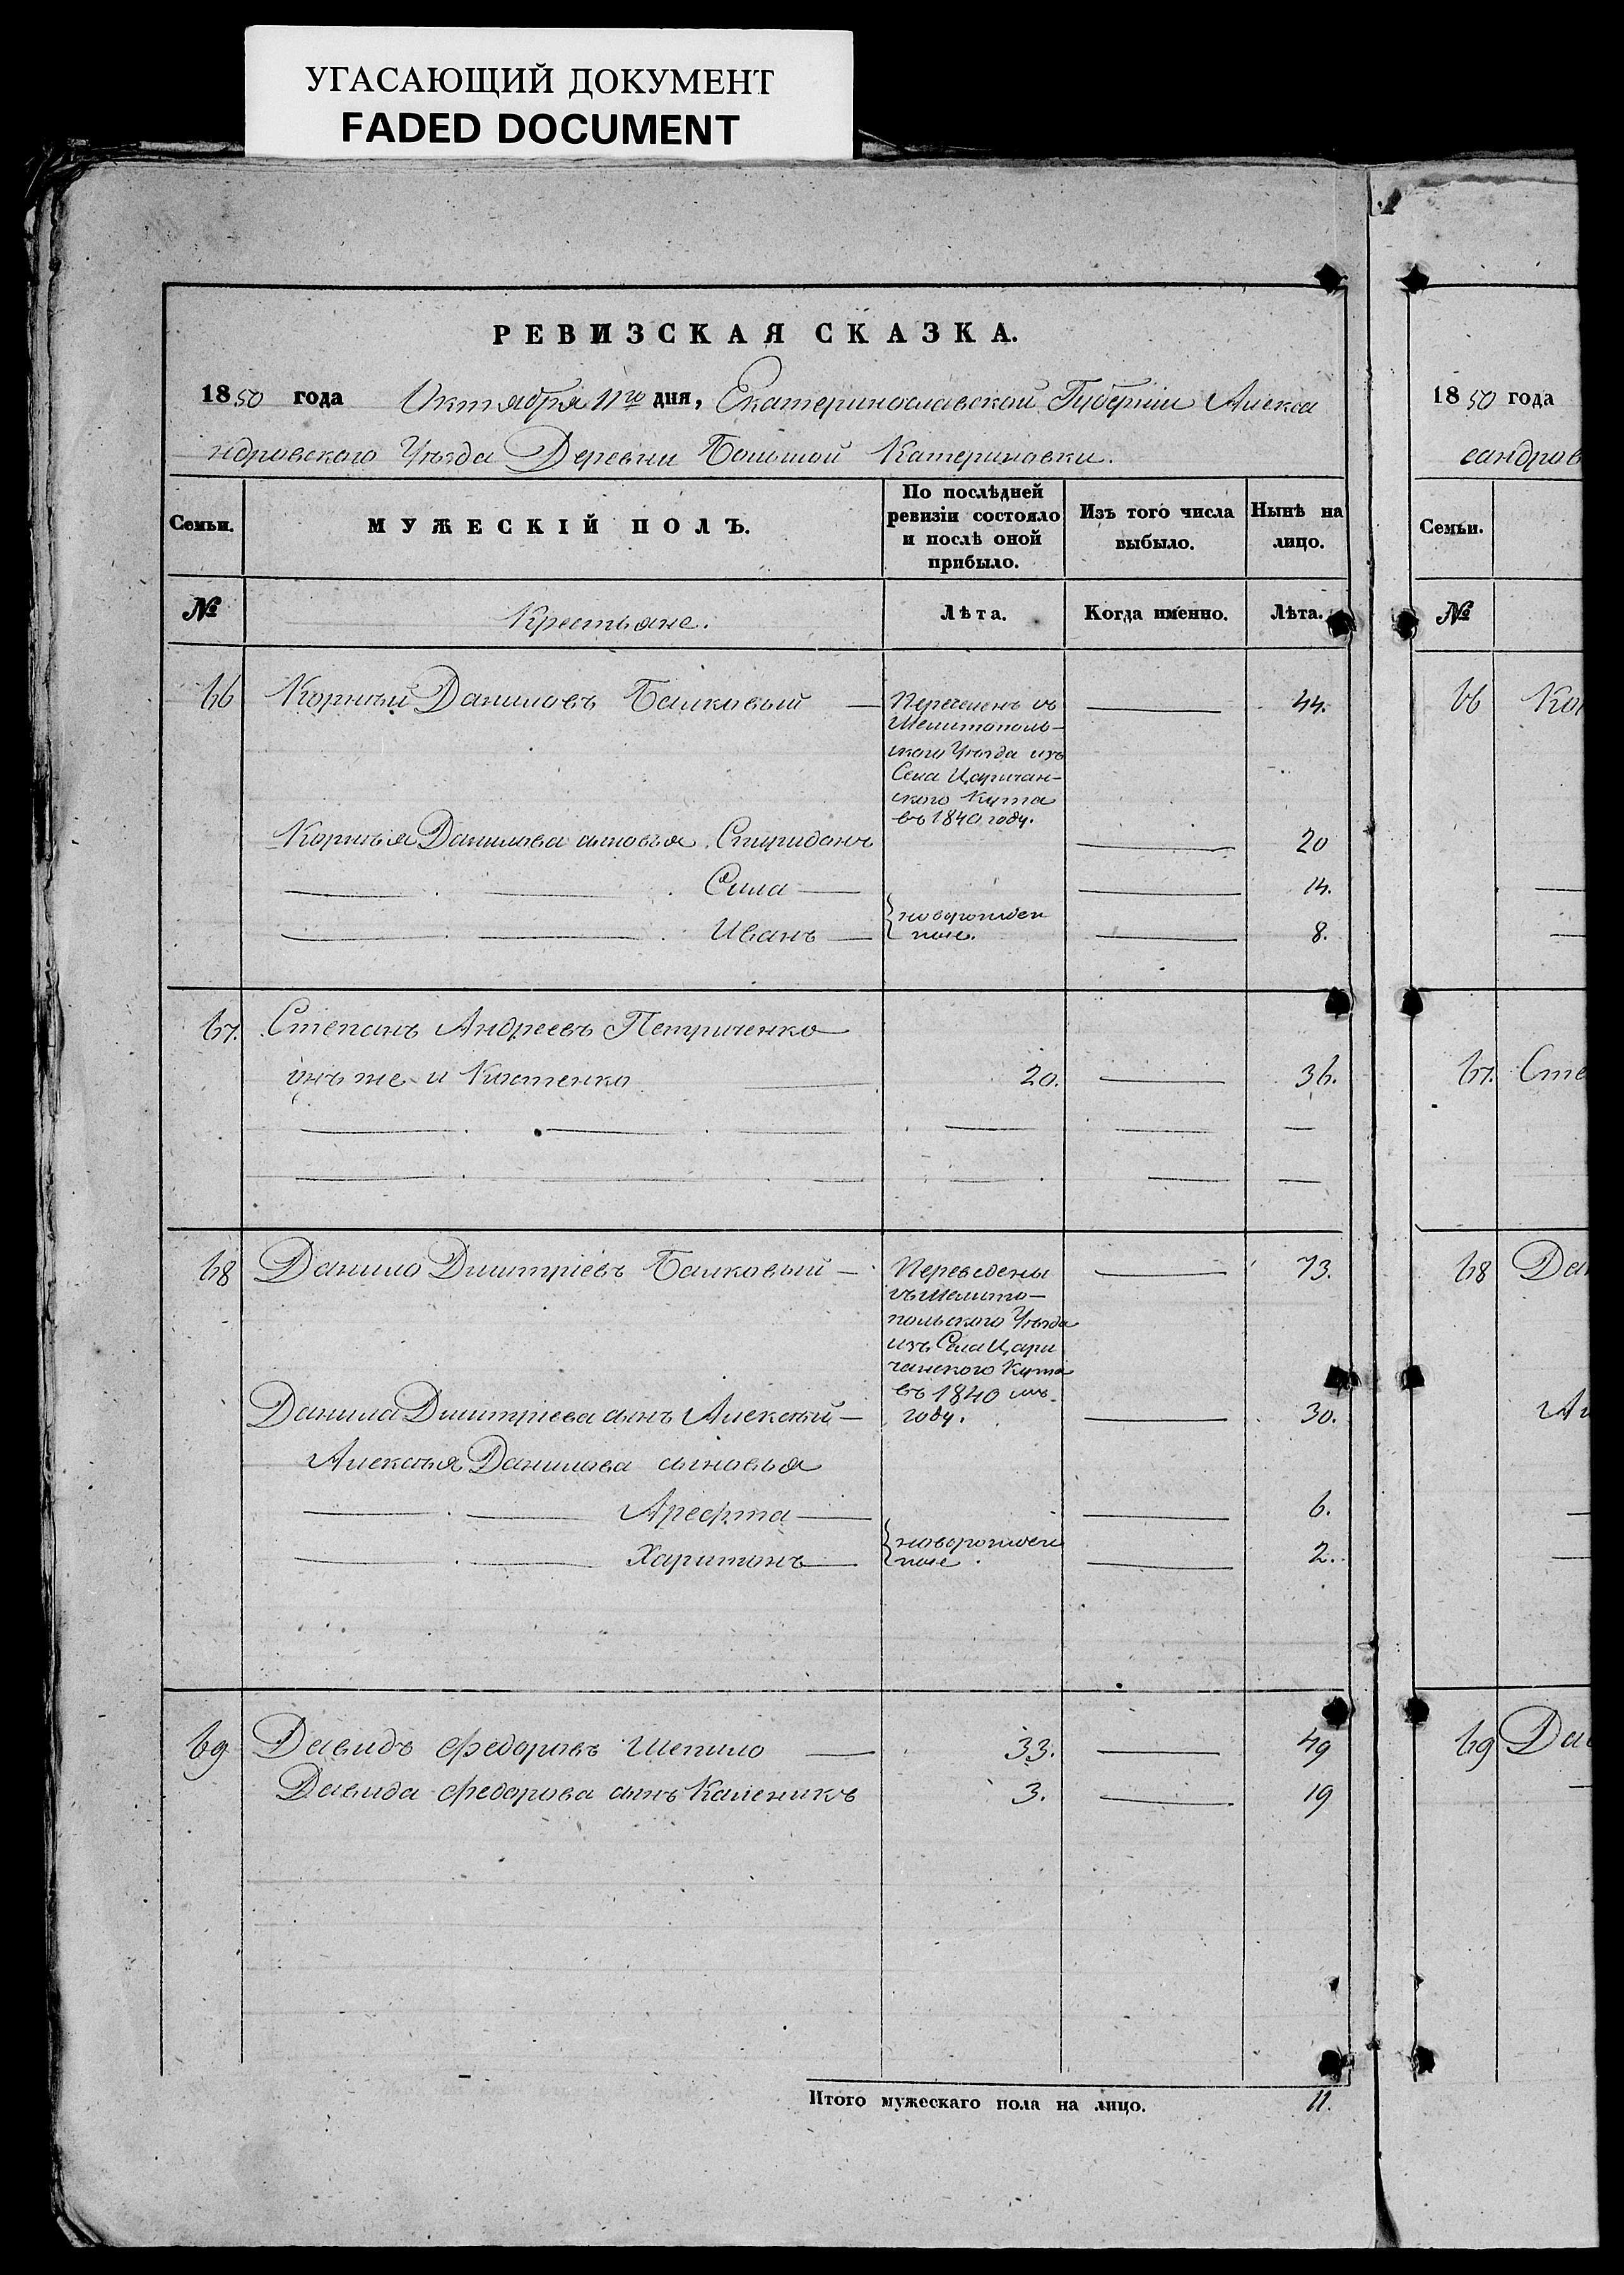 УГАСАЮЩИЙ ДОКУМЕНТ
FADED DOCUMENT
РЕВИЗСКАЯ СКАЗКА.
1850 года Октября 11го дня, Екатеринославской Губернии Алекса
ндровского Уѣзда Деревни Большой Катериновки.
Семьи.
МУЖЕСКІЙ ПОЛЪ.
По послѣдней
ревизіи состояло
и послѣ оной
прибыло.
Изъ того числа
выбыло.
Нынѣ на
лицо.
№
Крестьяне.
Лѣта.
Когда именно.
Лѣта.
66 Корнѣй Даниловъ Балковый — 44.
Перечисленъ съ
Мелитополь-
скаго Уѣзда изъ
Села Царичан-
ского Кута
въ 1840 году.
Корнѣя Данилова сыновья Спиридонъ 20
Сила — 14.
Иванъ — 8.
новорожден
ные.
67. Степанъ Андреевъ Петриченко
онъ же и Костенко 20. 36.
68 Данило Дмитріевъ Балковый — 73.
Переведены
съ Мелито-
польского Уѣзда
изъ Села Цари
чанского Кута
въ 1840 мъ
году.
Данила Дмитріева сынъ Алексѣй — 30.
Алексѣя Данилова сыновья
Арефта — 6.
Харитонъ — 2.
новорожден
ные.
69 Давидъ Федоровъ Шепило — 33. 49
Давида Федорова сынъ Каленикъ 3. 19
Итого мужескаго пола на лицо. 11.
1850 года
сандров
Семьи.
№
66 Кор
67. Сте
68 Дан
Ал
69 Дав